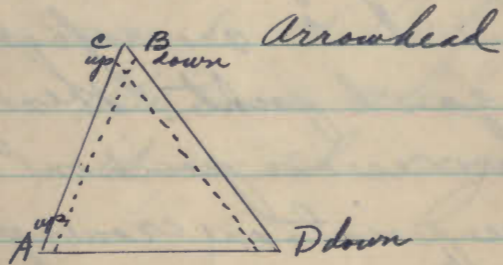 Arrowhead
C B
up down
up
A D down